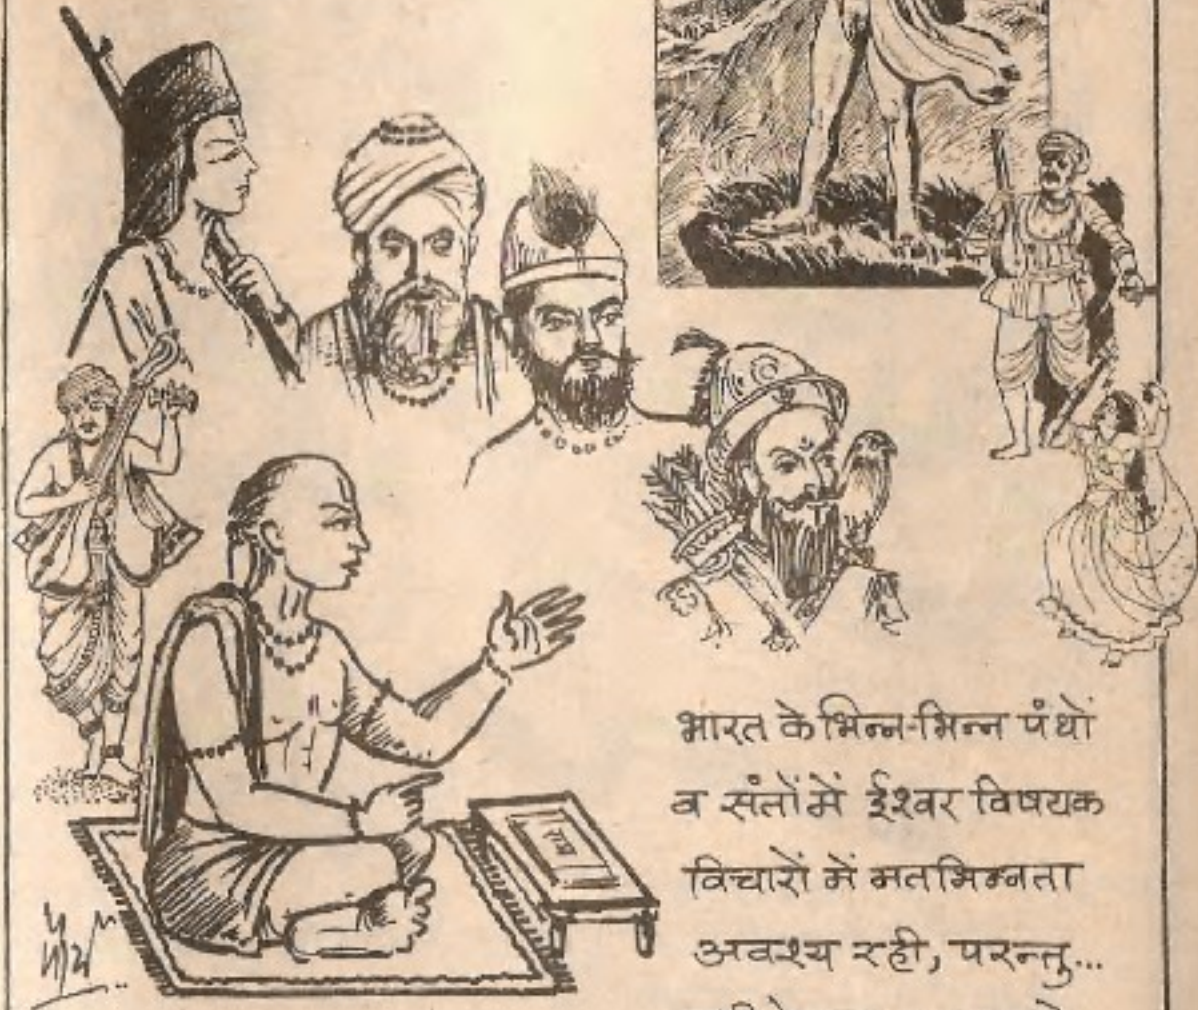 भारत के भिन्न-भिन्न पंथों
व संतों में ईश्वर विषयक
विचारों में मतभिन्नता
अवश्य रही, परन्तु...
राम